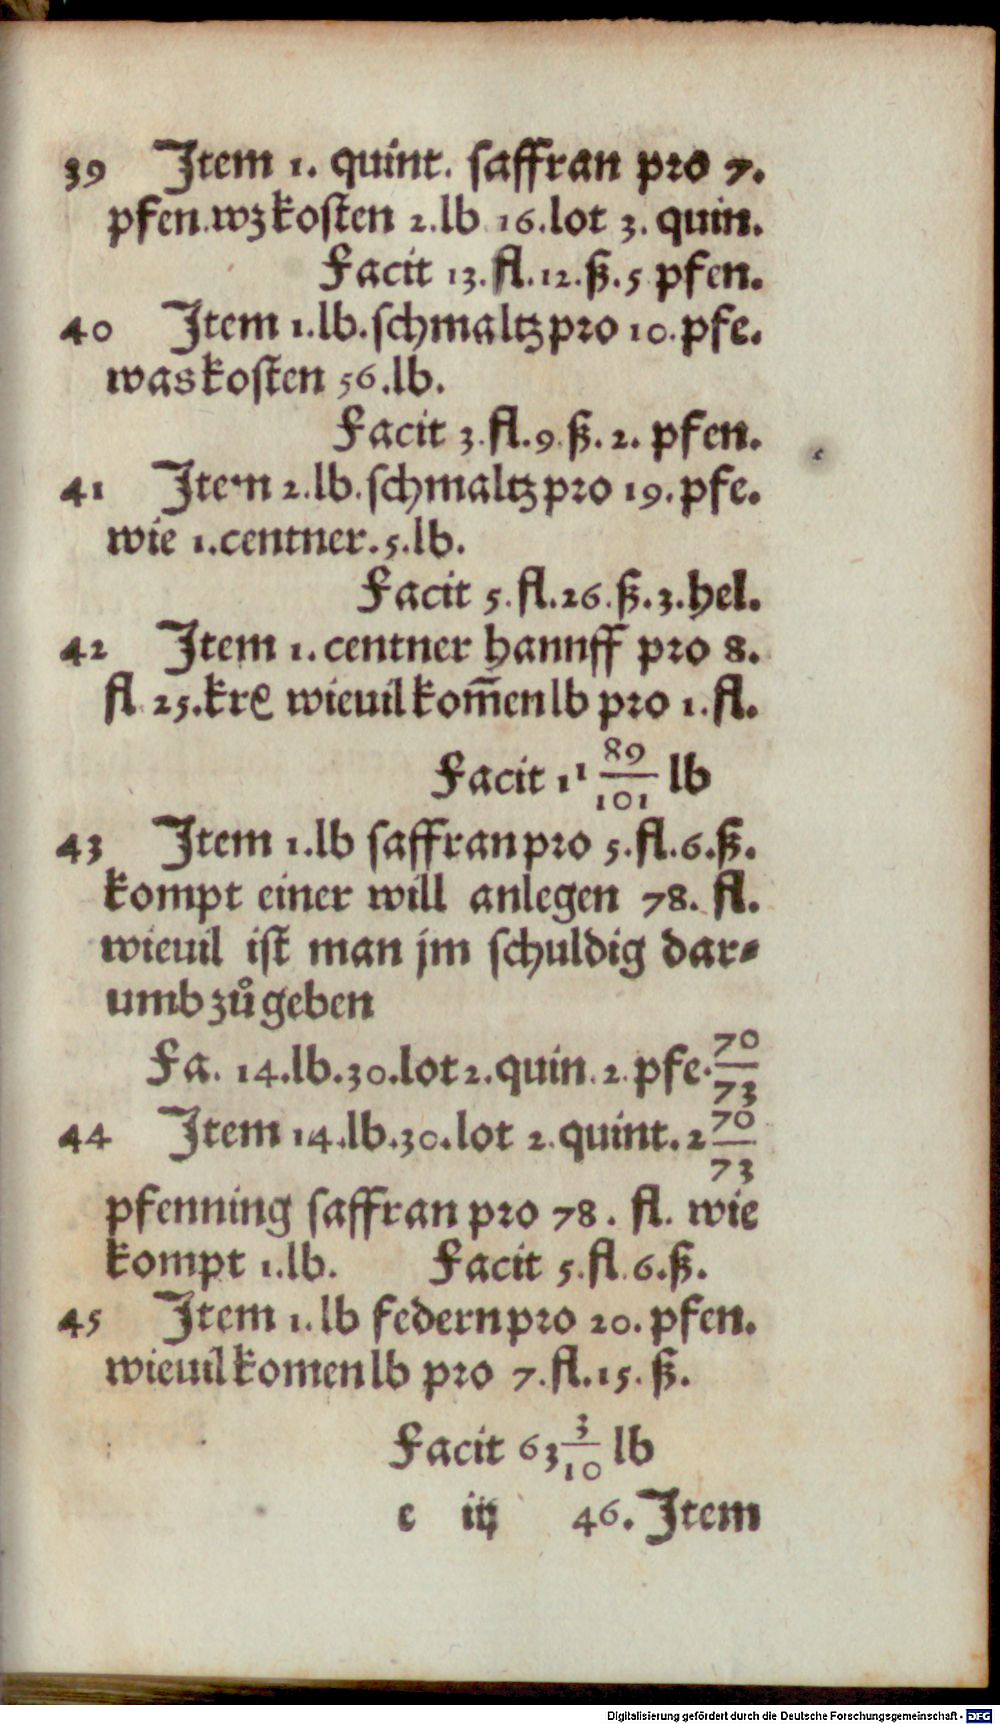 39 Jtem 1. quint. ſaffran pro 7.
pfen. wz koſten 2.lb 16.lot 3. quin.
Facit 13.fl.12.ß.5 pfen.
40 Jtem 1.lb.ſchmaltz pro 10.pfe.
was koſten 56.lb.
Facit 3.fl.9.ß.2. pfen.
41 Jtem 2.lb.ſchmaltz pro 19.pfe.
wie 1.centner.5.lb.
Facit 5.fl.26.ß.3.hel.
42 Jtem 1.centner hannff pro 8.
fl 25.krꝭ wieuil kom̃en lb pro 1.fl.
Facit 11 89/101 lb
43 Jtem 1.lb ſaffran pro 5.fl.6.ß.
kompt einer will anlegen 78. fl.
wieuil iſt man jm ſchuldig dar⸗
umb zů geben
Fa. 14.lb.30.lot 2.quin.2.pfe.70/73
44 Jtem 14.lb.30.lot 2.quint.2 70/73
pfenning ſaffran pro 78. fl. wie
kompt 1.lb. Facit 5.fl.6.ß.
45 Jtem 1.lb federn pro 20.pfen.
wieuil komen lb pro 7.fl.15.ß.
Facit 63 3/10 lb
c iij 46. Jtem
Digitalisierung gefördert durch die Deutsche Forschungsgemeinschaft - DFG